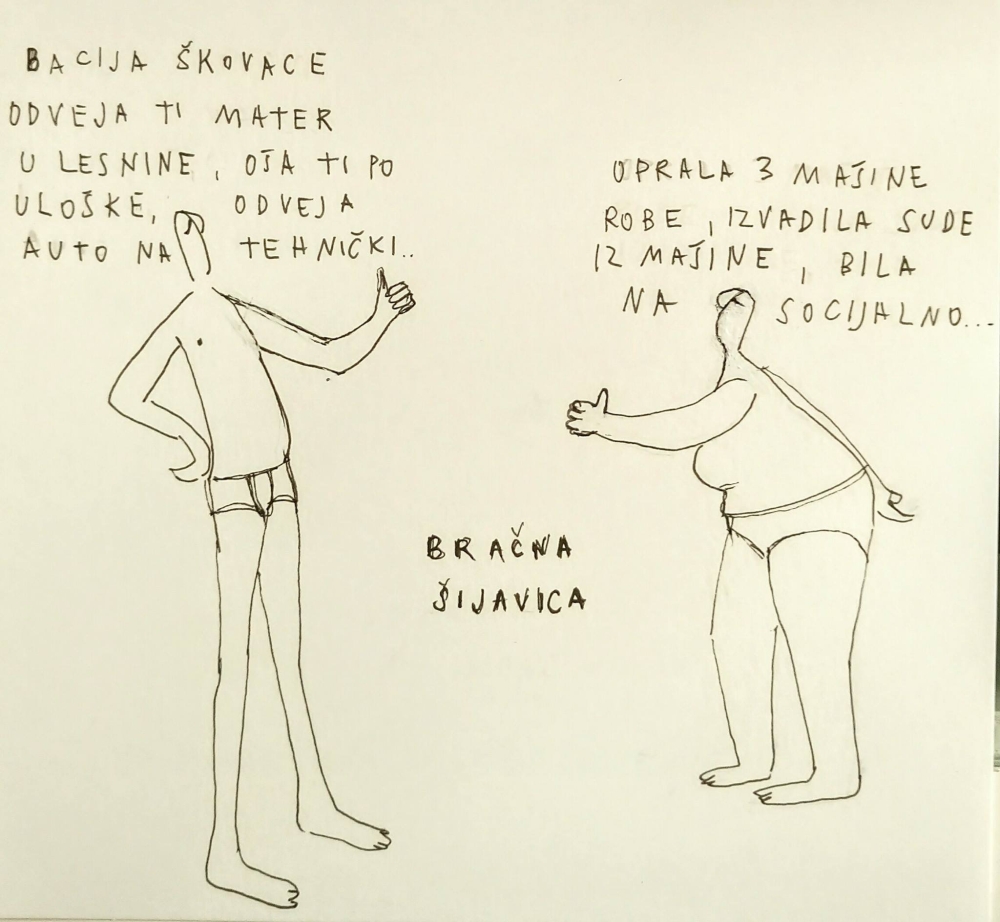 BACIJA ŠKOVACE
ODVEJA TI MATER
U LESNINE, OŠA TI PO
ULOŠKE, ODVEJA
AUTO NA TEHNIČKI..
OPRALA 3 MAŠINE
ROBE, IZVADILA SUDE
IZ MAŠINE, BILA
NA SOCIJALNO...
BRAČNA
ŠIJAVICA